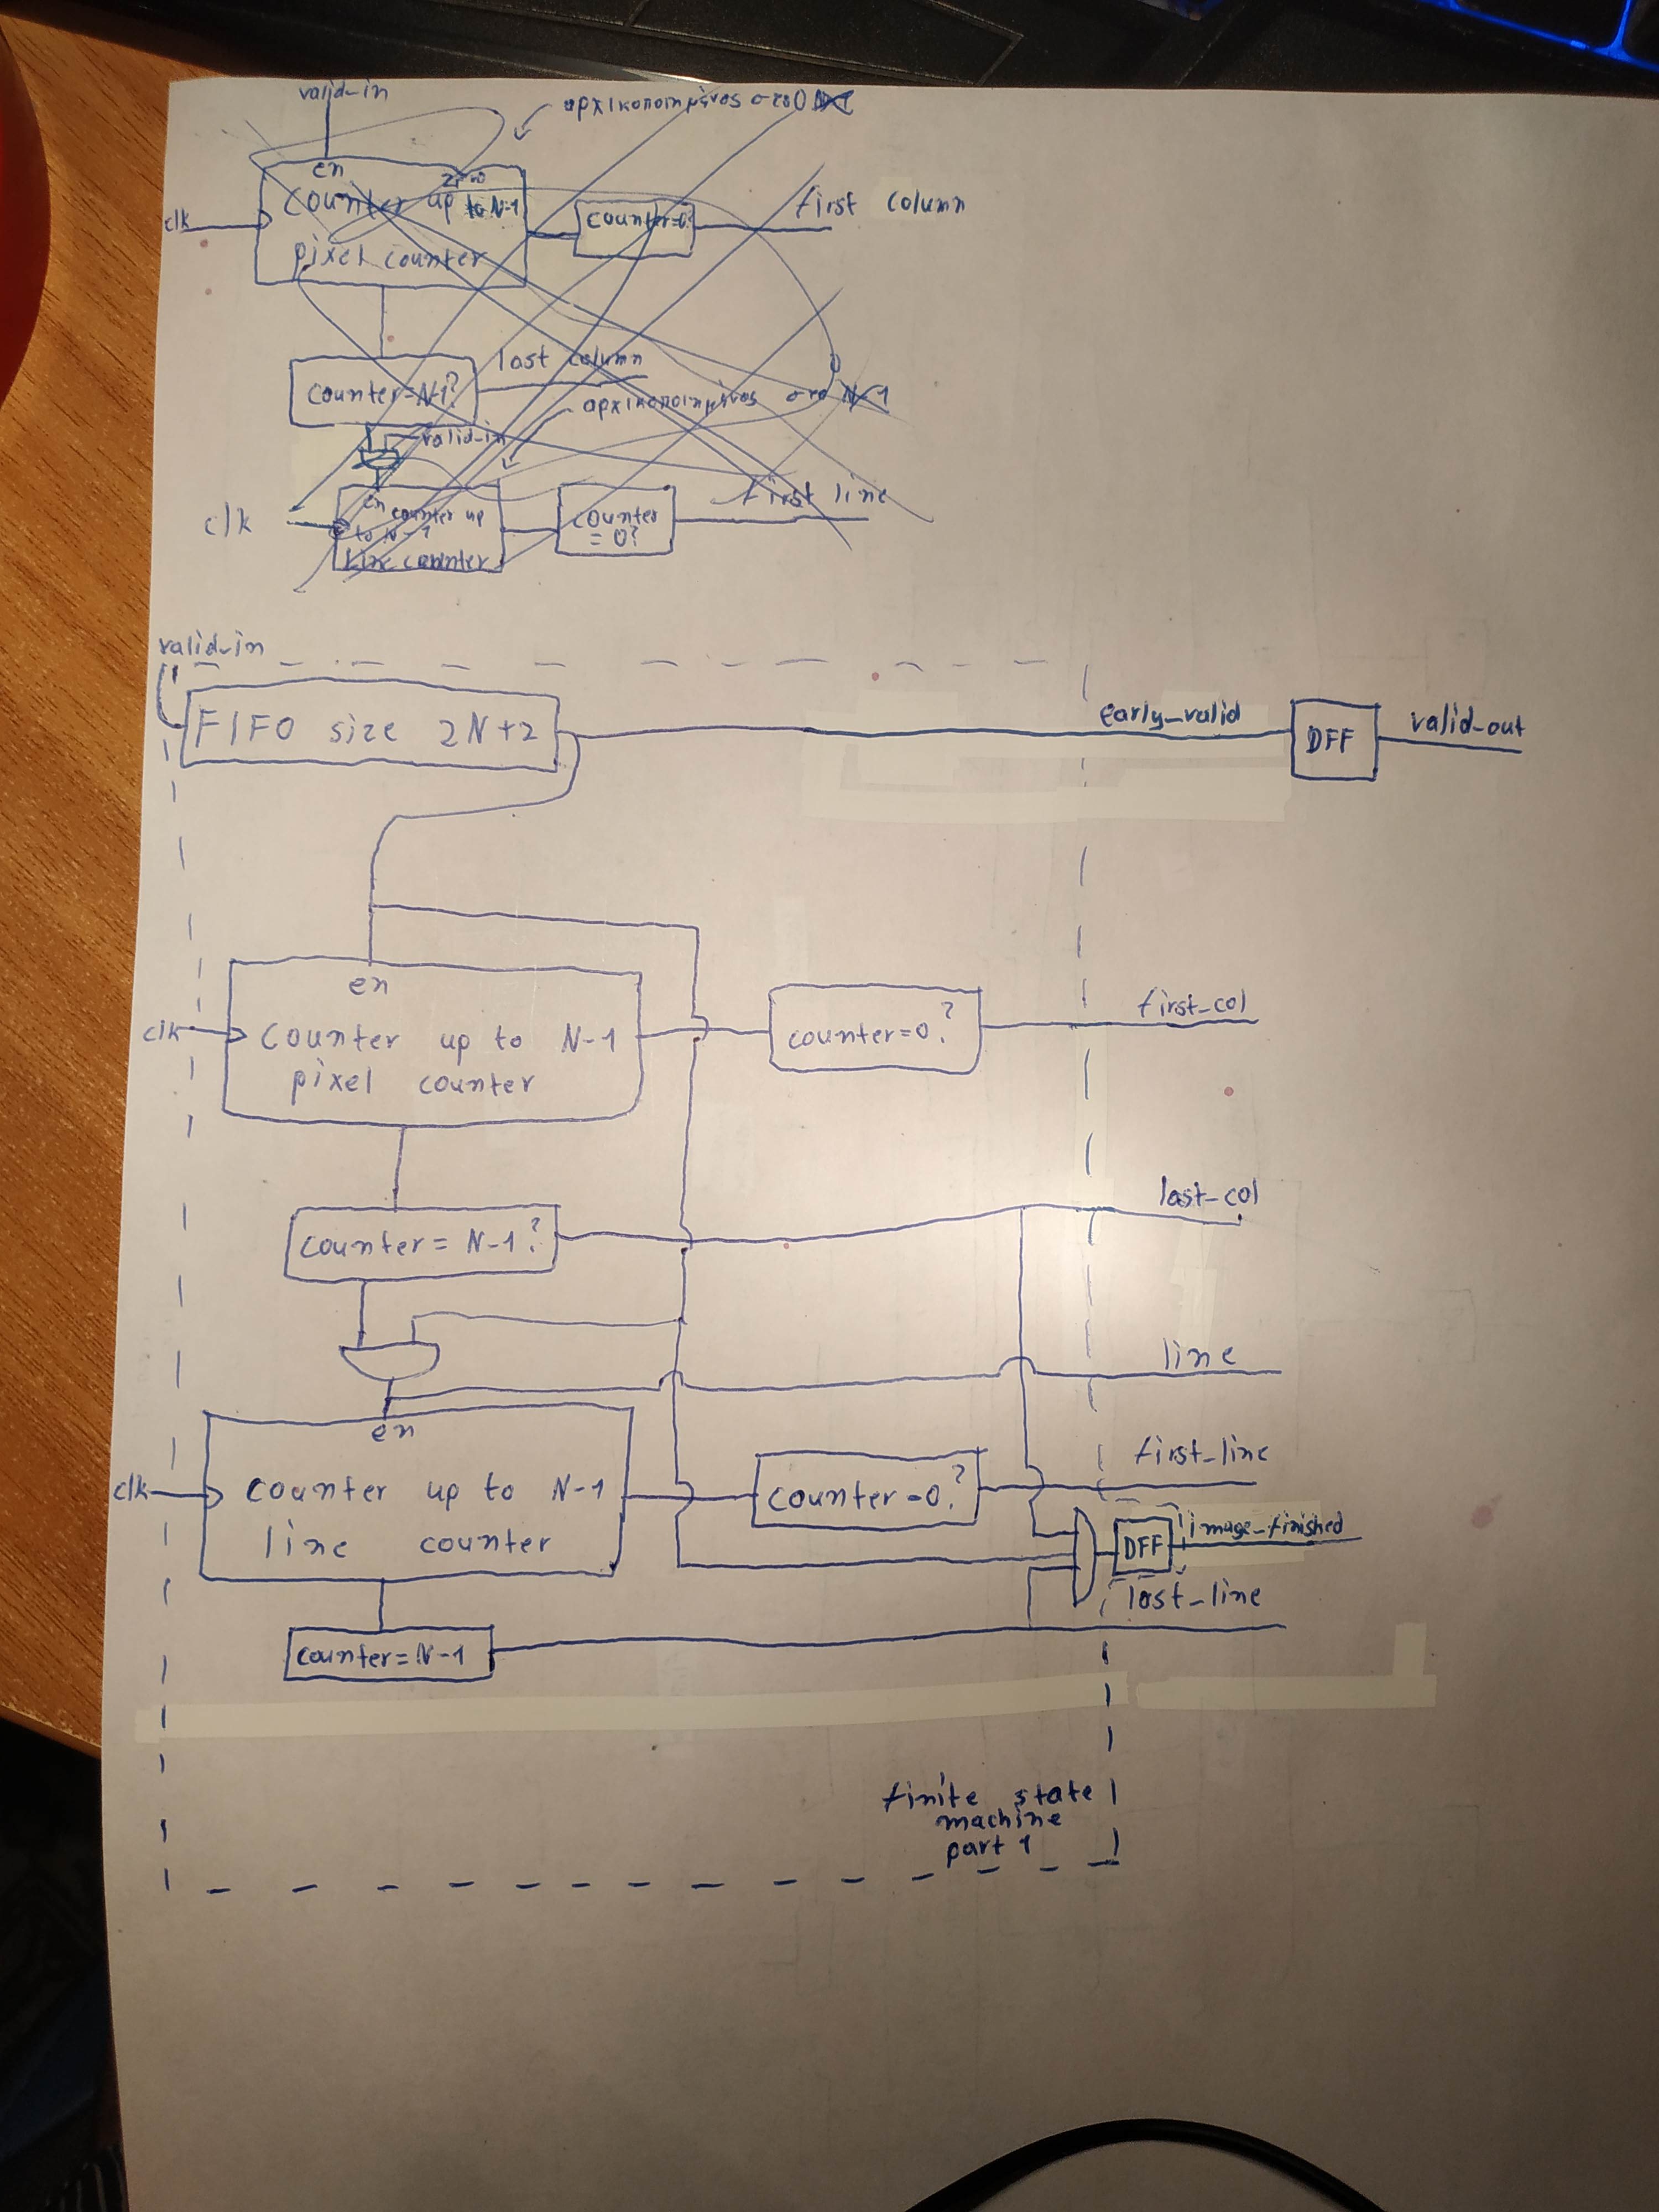 valid-in
αρχικοποιημένος στο 0
en
counter up to N-1
clk
pixel counter
counter=0?
first column
last column
counter=N-1?
αρχικοποιημένος στο N-1
valid-in
clk
en
counter up
to N-1
line counter
counter
= 0?
first line
valid-in
FIFO size 2N+2
early_valid
DFF
valid-out
en
clk
counter up to N-1
pixel counter
counter=0?
first-col
last-col
counter= N-1?
line
en
clk
counter up to N-1
line counter
counter=0?
first-line
DFF
image-finished
last-line
counter=N-1
finite state
machine
part 1